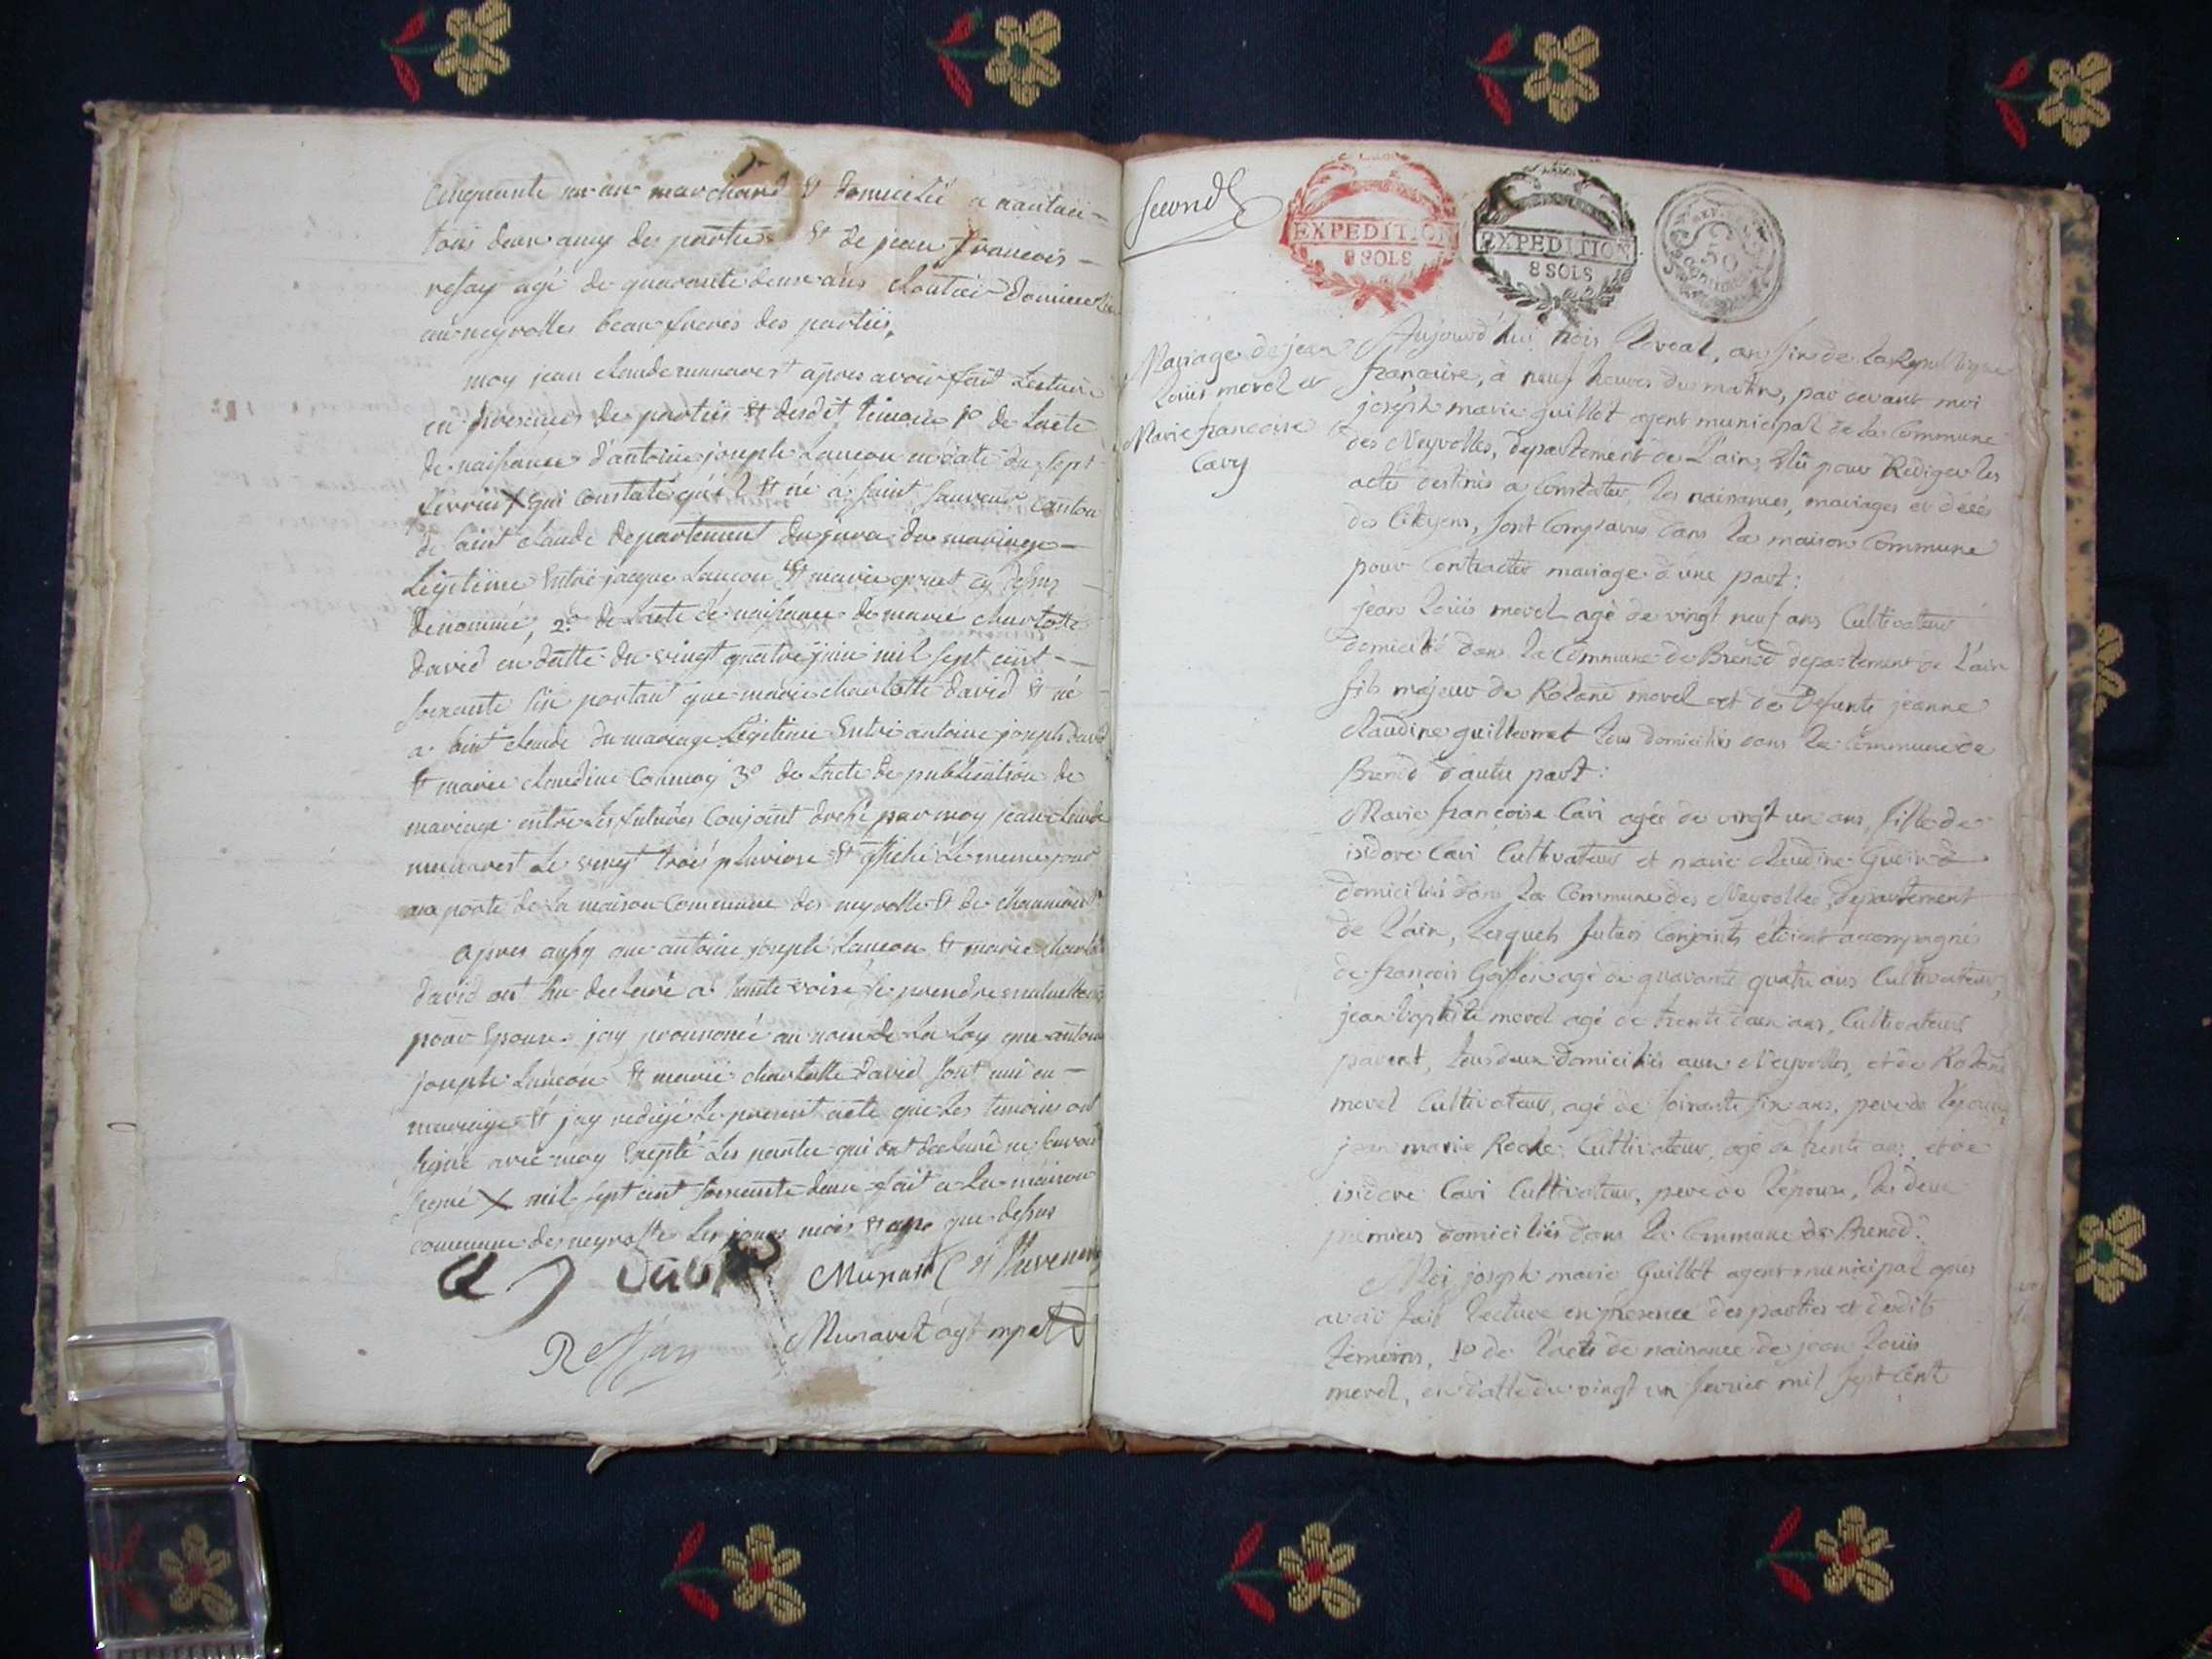 Cinquante un an marchand et domicilié a nantua –
tous deux amy des parties et de jean francois –
resay agé de quarante deux ans cloutier domicilié
au neyrolles beaufreres des parties,
moy jean claude munaret apres avoir fait lecture
en presences de parties et desdit temoin 1º de lacte
de naissance d'antoine joseph Lancon en date du sept
fevrier X qui constate qu'il et né a saint sauveur canton
de saint claude departement du jura du mariage –
Legitime Entre jacque Lancon et marie gruet cy dessus
denommé, 2º de lacte de naissance de marie charlotte
david en datte du vingt quatre juin mil sept cent –
soixante six portant que marie charlotte david et né
a saint claude du mariage Legitime Entre antoine joseph david
et marie claudine 3º de lacte de publication de
mariage entre les futures Conjoint dressé par moy jean claude
munaret le vingt trois pluviose et affiché le meme jour
au porte de la maison Commune des neyrolle et de
apres aussy que antoine joseph Lancon et marie charlotte
david ont eu declaré a haute voise se prendre mutuellement
pour Epoux jay prononcé au nom de La Loy que antoine
joseph Lancon et marie charlotte david sont uni en –
mariage et jay redigé le present acte que les temoins ont
signé avec moy Exepté Les partie qui ont declaré ne savoir
signé X mil sept cent soixante deux fait a la maison
commune des neyrolle les jours mois et an que dessus
Munaret
Ressay Munaret agt mpal
second
EXPEDITION
8 SOLS
EXPEDITION
8 SOLS
50
Mariage de jean
Louis morel et
Marie francoise
Cavy
Aujourd'hui trois floreal, an six de la Republique
française, à neuf heures du matin, par devant moi
joseph marie guillot agent municipal de la Commune
des Neyrolles, departement de L'ain, élu pour Rediger les
actes destinés a Constater les naissances, mariages et décés
des Citoyens, sont Comparus dans la maison Commune
pour Contracter mariage d'une part:
jean Louis morel agé de vingt neuf ans Cultivateur
domicilié dans la Commune de Brenod departement de L'ain
fils majeur de Roland morel et de Defunte jeanne
claudine guillermet tous domiciliés dans la Commune de
Brenod d'autre part:
Marie françoise Cavi agée de vingt un ans, fille de
isidore Cavi Cultivateur et marie claudine
domiciliés dans la Commune des Neyrolles, departement
de L'ain, Lesquels futurs Conjoints étoient accompagnés
de françois agé de quarante quatre ans Cultivateur,
jean baptiste morel agé de trente deux ans, Cultivateur
parent, tous deux domiciliés aux Neyrolles, et de Roland
morel Cultivateur, agé de soixante six ans, pere de l'epoux,
jean marie Roche Cultivateur, agé de trente ans, et de
isidore Cavi Cultivateur, pere de l'épouse, les deux
premiers domiciliés dans la Commune de Brenod.
Moi joseph marie Guillot agent municipal après
avoir fait lecture en présence des parties et desdits
temoins, 1º de l'acte de naissance de jean Louis
morel, en datte du vingt un fevrier mil sept cent